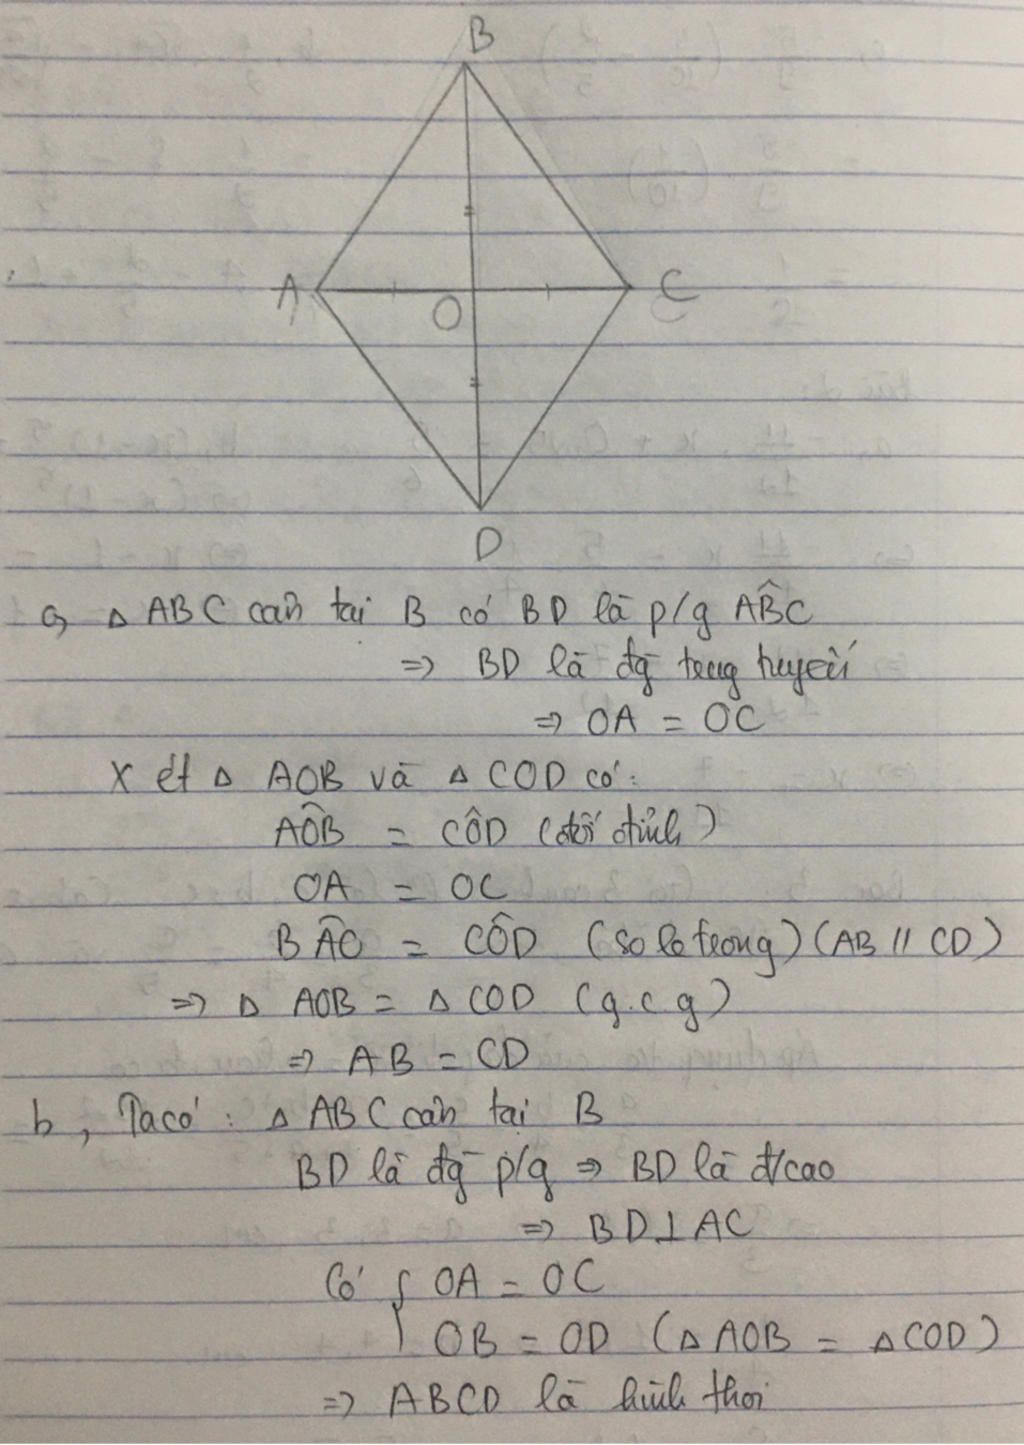 B
A
O
C
D
a, △ ABC cân tại B có BD là p/g AB̂C
=> BD là đg trung tuyến
=> OA = OC
Xét △ AOB và △ COD có:
AÔB = CÔD (đối đỉnh)
OA = OC
BÂO = CÔD (so le trong) (AB // CD)
=> △ AOB = △ COD (g.c.g)
=> AB = CD
b, Ta có: △ ABC cân tại B
BD là đg p/g => BD là đ/cao
=> BD ⊥ AC
Có { OA = OC
OB = OD (△ AOB = △ COD)
=> ABCD là hình thoi